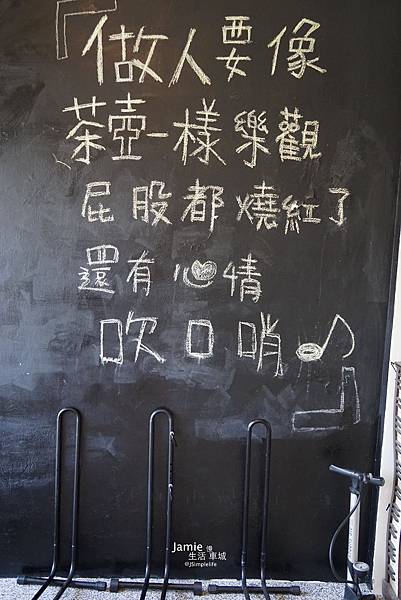 「做人要像
茶壺一樣樂觀
屁股都燒紅了
還有心情
吹口哨」
Jamie 慢
生活 車城
@JSimplelife